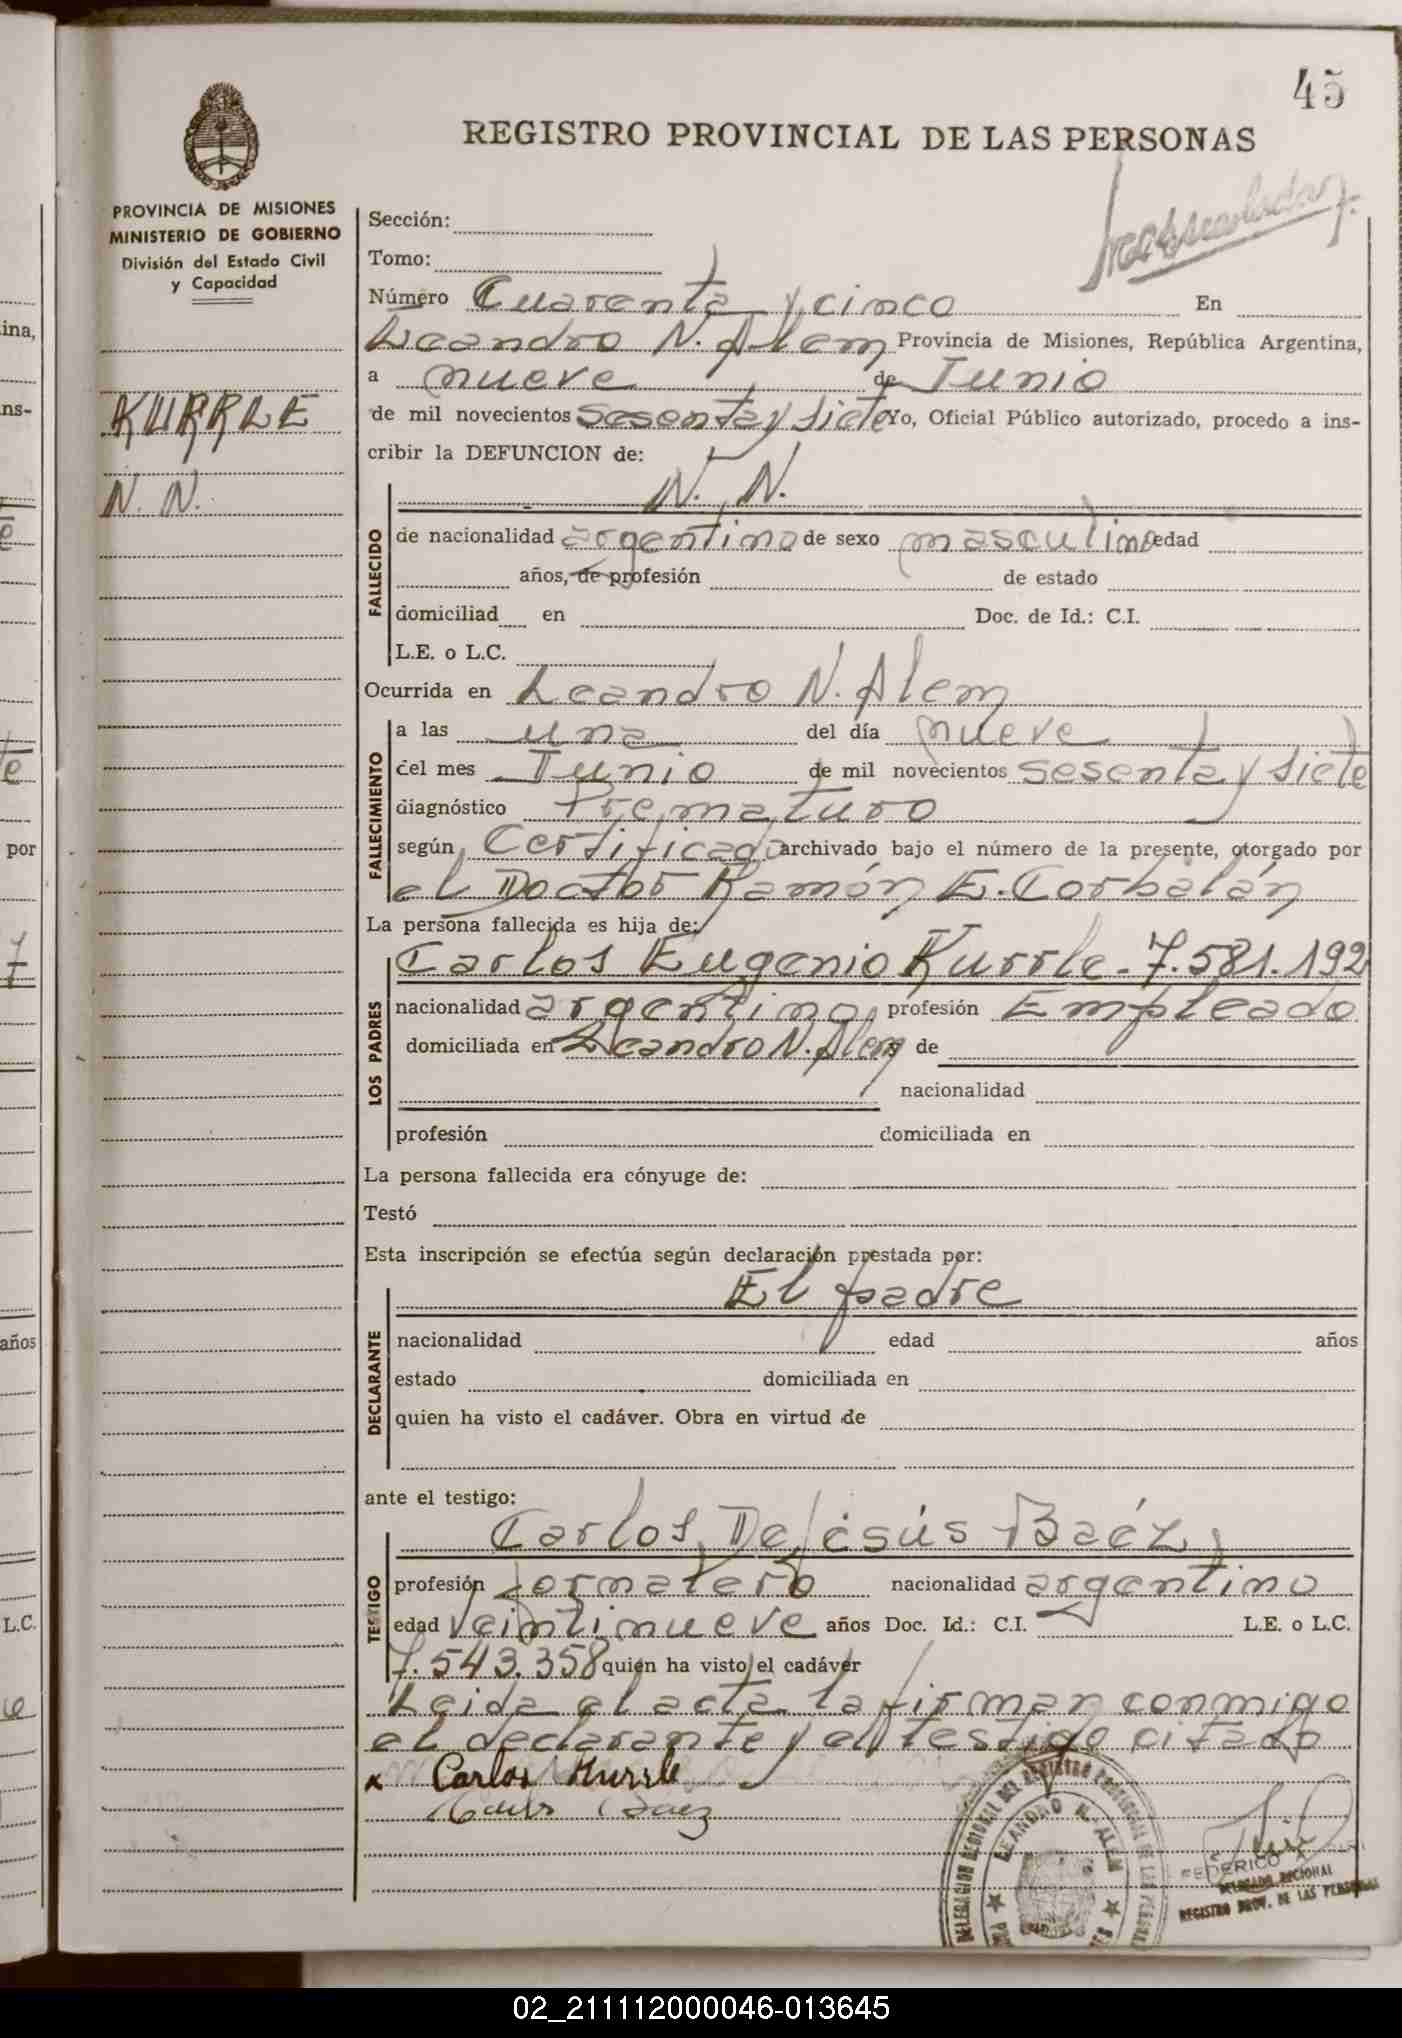 45
REGISTRO PROVINCIAL DE LAS PERSONAS
PROVINCIA DE MISIONES
MINISTERIO DE GOBIERNO
División del Estado Civil
y Capacidad
KURRLE
N. N.
Sección:
Tomo:
Número Cuarenta y cinco En
Leandro N. Alem Provincia de Misiones, República Argentina,
a nueve de Junio
de mil novecientos sesenta y siete Yo, Oficial Público autorizado, procedo a ins-
cribir la DEFUNCION de:
N. N.
FALLECIDO
de nacionalidad argentino de sexo masculino edad
años, de profesión de estado
domiciliad en Doc. de Id.: C.I.
L.E. o L.C.
Ocurrida en Leandro N. Alem
FALLECIMIENTO
a las una del día nueve
del mes Junio de mil novecientos sesenta y siete
diagnóstico Prematuro
según Certificado archivado bajo el número de la presente, otorgado por
el Doctor Ramón E. Corbalán
La persona fallecida es hija de:
LOS PADRES
Carlos Eugenio Kurrle - 7.581.192
nacionalidad argentino profesión Empleado
domiciliada en Leandro N. Alem y de
nacionalidad
profesión domiciliada en
La persona fallecida era cónyuge de:
Testó
Esta inscripción se efectúa según declaración prestada por:
DECLARANTE
El padre
nacionalidad edad años
estado domiciliada en
quien ha visto el cadáver. Obra en virtud de
ante el testigo:
TESTIGO
Carlos De Jesús Baéz
profesión Jornalero nacionalidad argentino
edad veintinueve años Doc. Id.: C.I. L.E. o L.C.
7.543.358 quien ha visto el cadáver
Leida el acta la firman conmigo
el declarante y el testigo citado
x Carlos Kurrle
Carlos Baez
DELEGACION REGIONAL DEL REGISTRO PROVINCIAL DE LAS PERSONAS
LEANDRO N. ALEM
FEDERICO
DELEGADO REGIONAL
REGISTRO PROV. DE LAS PERSONAS
ina,
ns-
por
años
L.C.
02_211112000046-013645